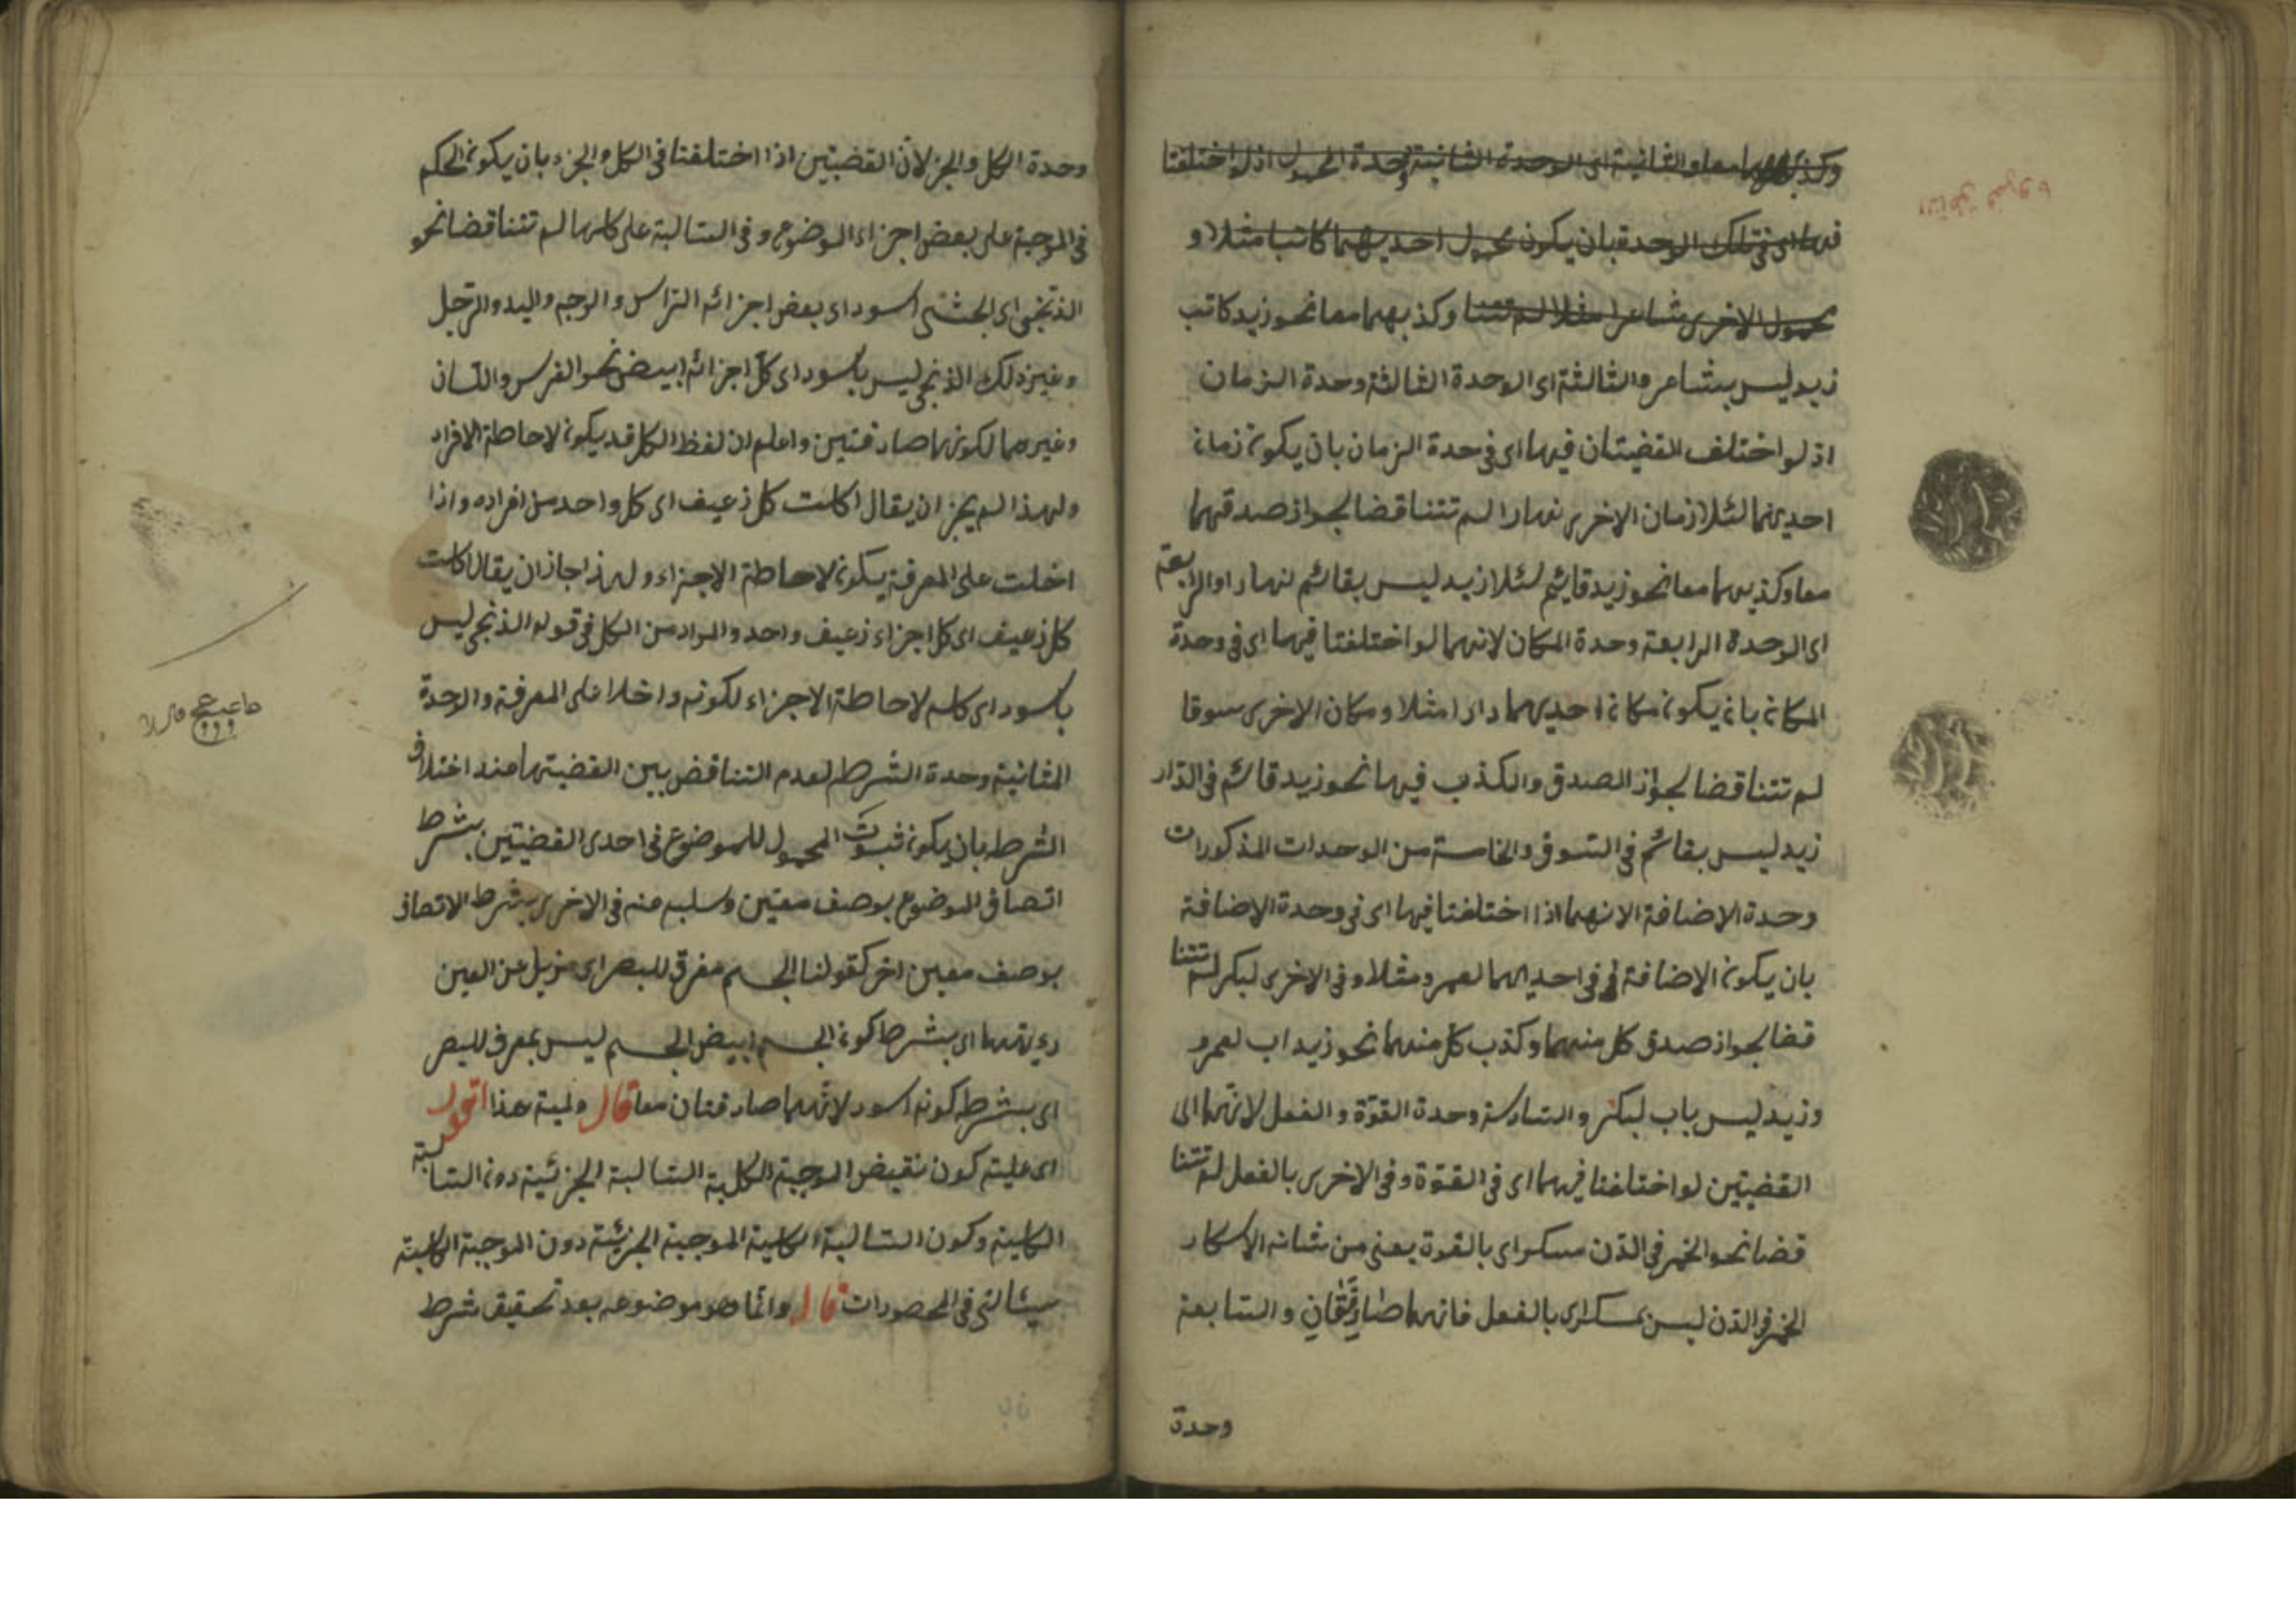 وكذبهما معا والثانية اى الوحدة الثانية وحدة المحمول اذ لو اختلفتا
فيها اى فى تلك الوحدة بان يكون محمول احديهما كاتبا مثلا و
محمول الاخرى شاعرا مثلا لم تتنا وكذبهما معا نحو زيد كاتب
زيد ليس بشاعر والثالثة اى الوحدة الثالثة وحدة الزمان
اذ لو اختلف القضيتان فيها اى فى حدة الزمان بان يكون زمان
احديهما لئلا زمان الاخرى نهارا لم تتناقضا لجواز صدقهما
معا وكذبهما معا نحو زيد قايئم لئلا زيد ليس بقائم نهارا والرابعة
اى الوحدة الرابعة وحدة المكان لانهما لو اختلفتا فيها اى فى وحدة
المكان بان يكون مكان احديهما دارا مثلا ومكان الاخرى سوقا
لم تتناقضا لجواز الصدق والكذب فيها نحو زيد قائم فى الدار
زيد ليس بقائم فى السوق والخامسة من الوحدات المذكورات
وحدة الاضافة لانهما اذا اختلفتا فيها اى فى وحدة الاضافة
بان يكون الاضافة فى احديهما لعمرو مثلا وفى الاخرى لبكر لم تتنا
قضا لجواز صدق كل منهما وكذب كل منهما نحو زيد اب لعمرو
وزيد ليس باب لبكر والسادسة وحدة القوّة والفعل لانهما اى
القضيتين لو اختلفتا فيهما اى فى القوّة وفى الاخرى بالفعل لم تتنا
قضا نحو الخمر فى الدّن مسكر اى بالقوة يعنى من شانه الاسكار
الخمر فى الدن ليس بمسكر اى بالفعل فانهما صَادِقَتَانِ والسابعة
وحدة
وحدة الكل والجز لانّ القضيتين اذا اختلفتا فى الكل والجزء بان يكون الحكم
فى الموجبة على بعض اجزاء الموضوع وفى السالبة على كلها لم تتناقضا نحو
الذنجى اى الحبشى اسود اى بعض اجزائه الرأس والوجه واليد والرجل
وغير ذلك الذنجى ليس باسود اى كلّ اجزائه ابيض نحو الفرس واللسان
وغيرهما لكونهما صادقتين واعلم ان لفظ الكل قد يكون لاحاطة الافراد
ولهذا لم يجز ان يقال اكلت كل زعيف اى كل واحد من افراده واذا
اخلت على المعرفة يكون لاحاطة الاجزاء ولهذا جاز ان يقال اكلت
كل زعيف اى كل اجزاء زعيف واحد والمراد من الكل فى قوله الذنجى ليس
باسود اى كله لاحاطة الاجزاء لكونه داخلا على المعرفة والوحدة
الثانية وحدة الشرط لعدم التناقض بين القضيتها عند اختلاف
الشرط بان يكون ثبوت المحمول للموضوع فى احدى القضيتين بشرط
اتصاف الموضوع بوصف معيّن وسلبه عنه فى الاخرى بشرط الاتصاف
بوصف معين اخر كقولنا الجسم مفرق للبصر اى مزيل عن العين
رءيتهما اى بشرط كون الجسم ابيض الجسم ليس بمعرف للبصر
اى بشرط كونه اسود لانّهما صادقتان معا قال ولمية هذا اقول
اى علية كون نقيض الموجبة الكلية السالبة الجزئية دون السالبة
الكلية وكون السالبة الكلية الموجبة الجزئية دون الموجبة الكلية
سيئاتى فى المحصورات قال وانما هو موضوعه بعد تحقيق شرط